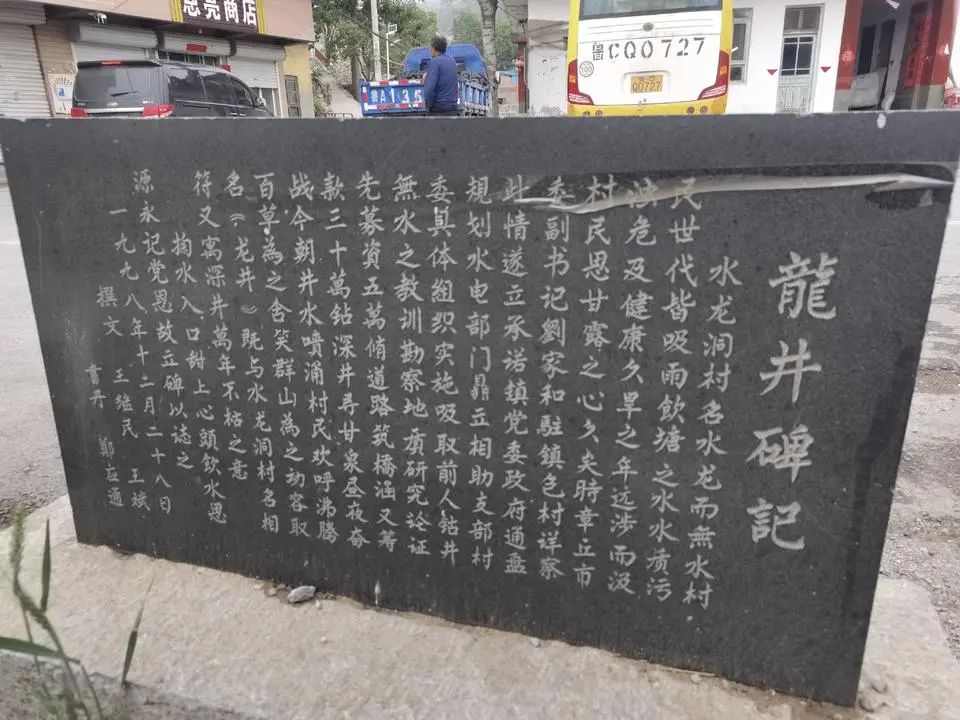 思亮商店
鲁A135
鲁CQ0727
100
Q0727
龍井碑記
水龙洞村名水龙而無水村
民世代皆吸雨飲塘之水水质污
浊危及健康久旱之年远涉而汲
村民思甘露之心久矣時章丘市
委副书记劉家和駐镇包村详察
此情遂立承诺镇党委政府通盘
規划水电部门鼎立相助支部村
委具体组织实施吸取前人钻井
無水之教训勘察地质研究论证
先募資五萬俏道路筑橋涵又筹
款三十萬钻深井寻甘泉昼夜奋
战今朝井水喷涌村民欢呼沸腾
百草為之含笑群山為之动容取
名《龙井》既与水龙洞村名相
符又寓深井萬年不枯之意
掬水入口甜上心頭飲水思
源永记党恩故立碑以誌之
一九九八年十二月二十八日
撰文 王继民 王斌
書丹 鄭应通